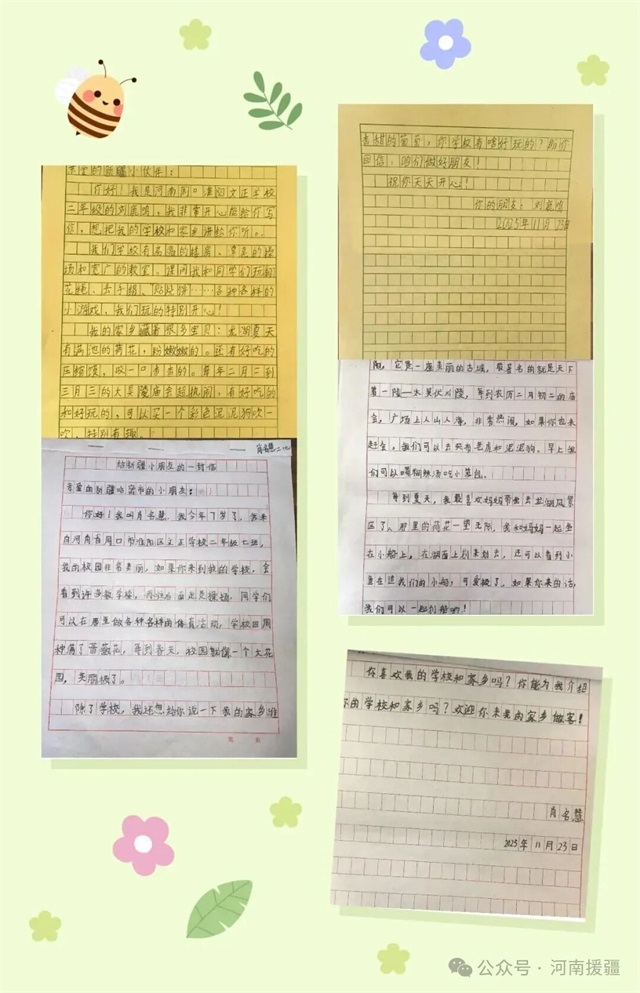 亲爱的新疆小伙伴：
你好！我是河南周口淮阳文正学校
二年级的刘 ，我非常开心能给你写
信，想把我的学校和家乡讲给你听。
我们学校有高高的楼房、
场和宽广的教室，课间我和同学们玩
、丢手绢、 各种各样的
小游戏，我们玩的特别开心！
我的家乡藏着很多宝贝：龙湖夏天
有满池的荷花，粉嫩嫩的。还有好吃的
，咬一口 的。每年二月二到
三月三的太昊陵庙会超热闹，有好吃的
和好玩的，可以买一个彩色泥泥狗吹一
吹，特别有趣。
的葡萄，你学校有啥好玩的？盼你
回信，咱们做好朋友！
祝你天天开心！
你的朋友：刘
2025年11月23日
肖名慧 二（七）
给新疆小朋友的一封信
亲爱的新疆哈密市的小朋友：
你好！我叫肖名慧，我今年7岁了，我来
自河南省周口市淮阳区文正学校二年级七班。
我的校园非常美丽，如果你来到我的学校，会
看到许多教学楼， 面还是操场，同学们
可以在那里做各种各样的体育活动，学校四周
种满了蔷薇花，每到春天，校园就像一个大花
园，美丽极了。
除了学校，我还想给你说一下我的家乡淮
第 页
阳，它是一座美丽的古城，最著名的就是天下
第一陵—太昊伏羲陵，每到农历二月初二的庙
会，广场上人山人海，非常热闹，如果你也来
赶会，我们可以去买布老虎和泥泥狗，早上我
们可以喝胡辣汤吃小笼包。
每到夏天，我最喜欢妈妈带我去龙湖风景
区了，那里的荷花一望无际，我和妈妈一起坐
在小船上，在湖面上划来划去，还可以看到小
鱼在追我们的小船，可爱极了。如果你来的话，
我们可以一起划船哟！
你喜欢我的学校和家乡吗？你能为我介绍
你的学校和家乡吗？欢迎你来我的家乡做客！
肖名慧
2025年11月23日
公众号·河南援疆